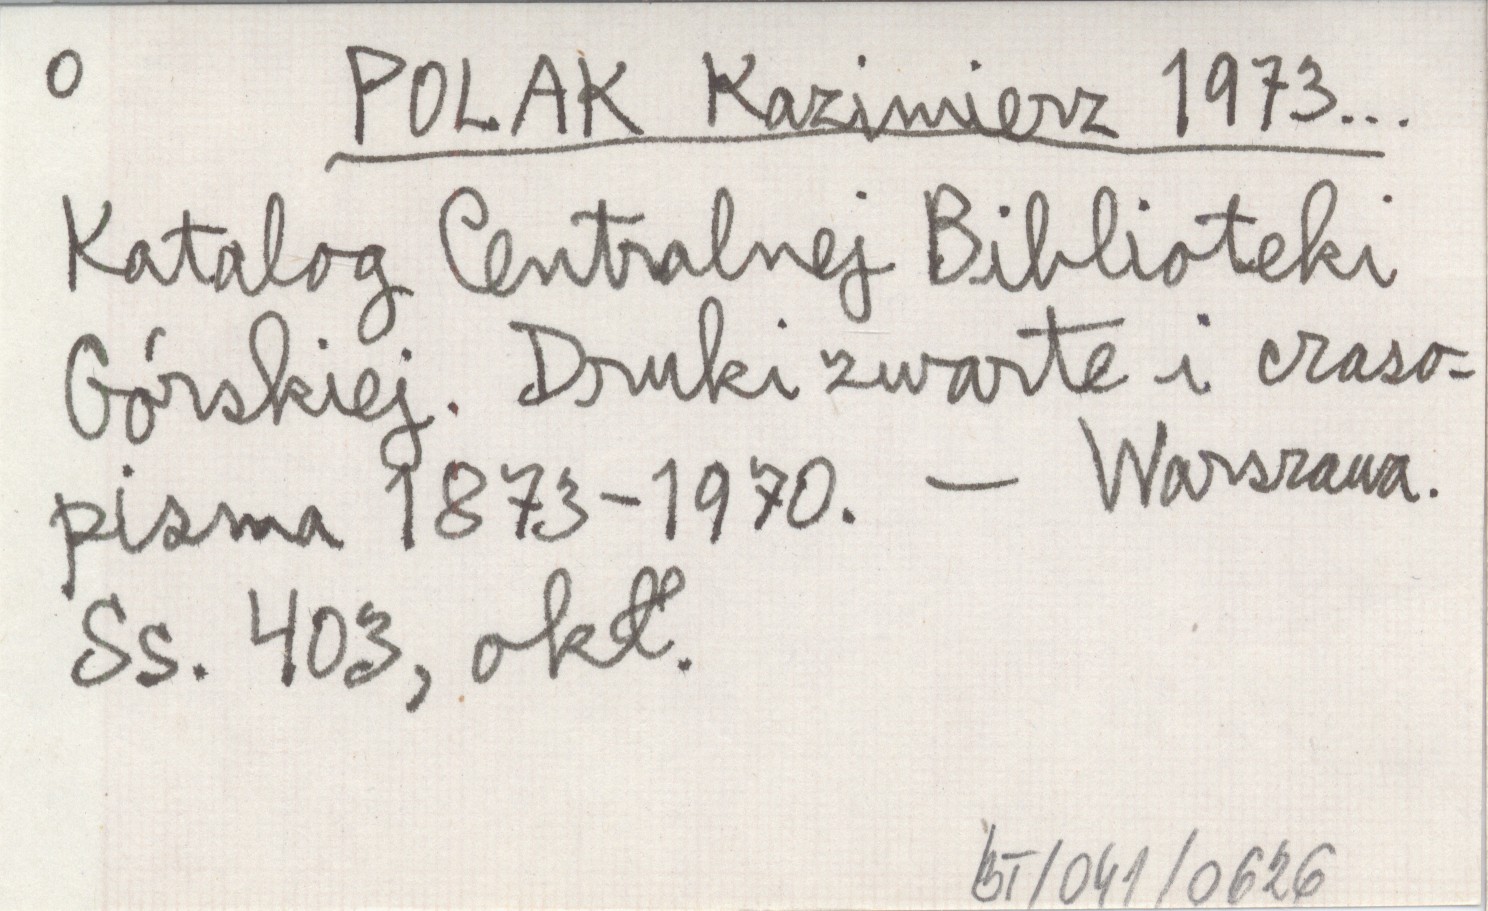 O POLAK Kazimierz 1973...
Katalog Centralnej Biblioteki
Górskiej. Druki zwarte i czaso-
pisma 1873-1970. — Warszawa.
Ss. 403, okł.
BT/041/0626